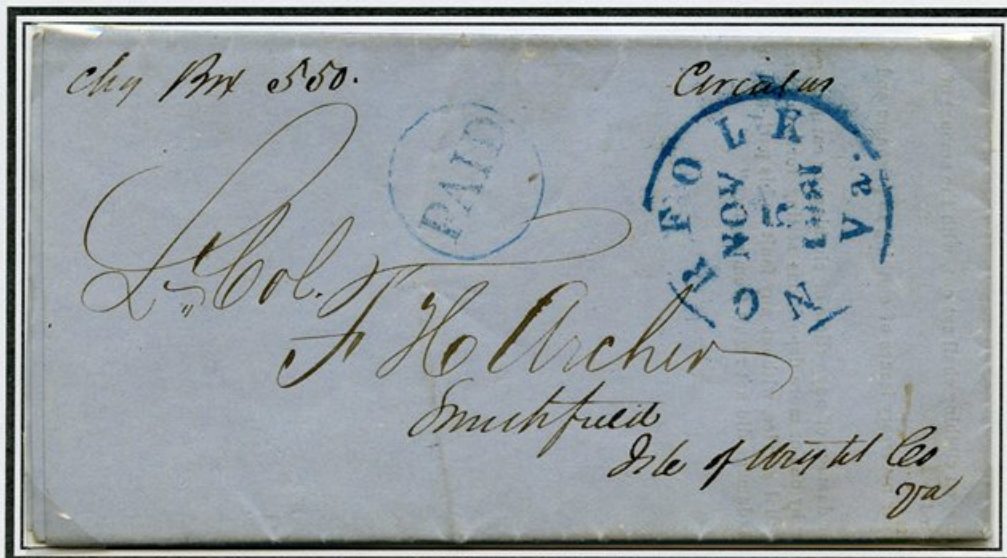 Chg Box 550.
Circular
PAID
NORFOLK Va.
NOV
5
1861
Lt Col.
F H Archer
Smithfield
Isle of Wight Co
Va